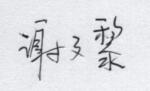 谢文黎